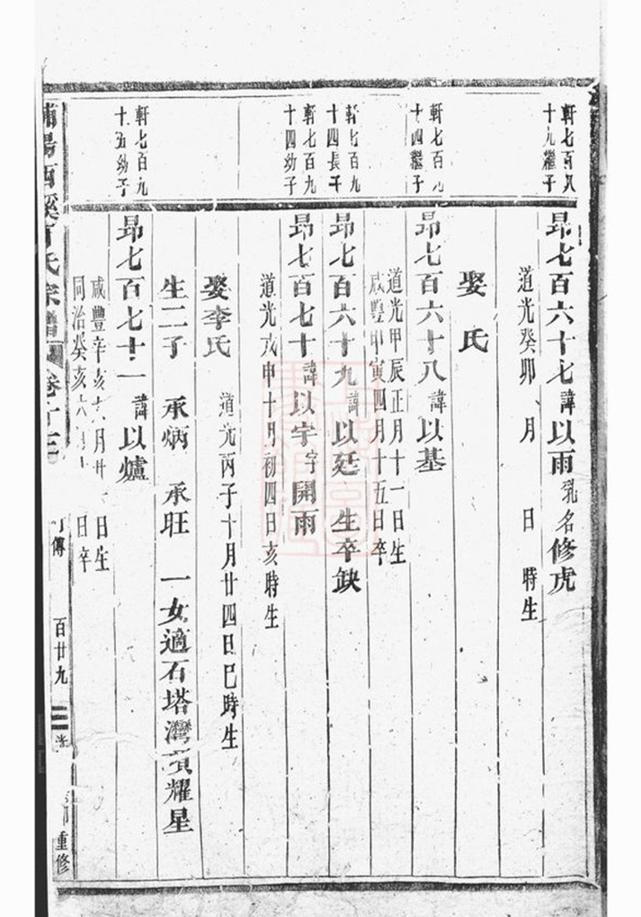 軒七百八
十九繼子
昂七百六十七諱以雨乳名修虎
道光癸卯 月 日 時生
娶 氏
軒七百九
十四繼子
昂七百六十八諱以基
道光甲辰正月十一日生
咸豐甲寅四月十五日卒
軒七百九
十四長子
昂七百六十九諱以廷 生卒缺
軒七百九
十四幼子
昂七百七十諱以宇字開雨
道光戊申十月初四日亥時生
娶李氏 道光丙子十月廿四日巳時生
生二子 承炳 承旺 一女適石塔灣黃耀星
軒七百九
十五幼子
昂七百七十一諱以爐
咸豐辛亥六月廿 日生
同治癸亥六月 日卒
浦陽西溪 氏宗譜 卷十三 傳 百廿九 重修